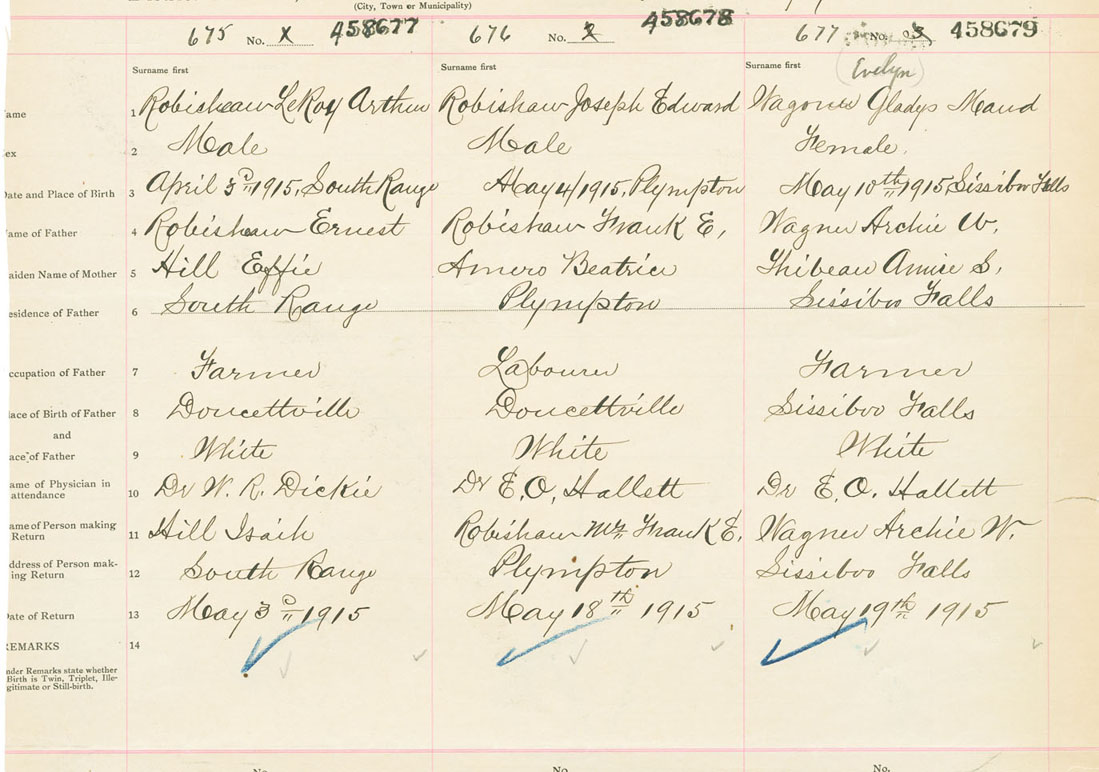 (City, Town or Municipality)
675 No. x 458677 676 No. 2 458678 677 No. 3 458679
Surname first Surname first Surname first (Evelyn)
ame 1 Robisheaw LeRoy Arthur Robishaw Joseph Edward Wagoner Gladys Maud
ex 2 Male Male Female.
Date and Place of Birth 3 April 3rd 1915, South Range May 4/1915, Plympton May 10th 1915, Sissiboo Falls
ame of Father 4 Robishaw Ernest Robishaw Frank E, Wagner Archie W.
aiden Name of Mother 5 Hill Effie Amero Beatrice Thibeau Annie S,
esidence of Father 6 South Range Plympton Sissiboo Falls
ccupation of Father 7 Farmer Labourer Farmer
lace of Birth of Father 8 Doucettville Doucettville Sissiboo Falls
and
ace of Father 9 White White White
ame of Physician in
attendance 10 Dr W. R. Dickie Dr E, O, Hallett Dr E. O. Hallett
ame of Person making
Return 11 Hill Isaih Robishaw Mr Frank E. Wagner Archie W.
ddress of Person mak-
ing Return 12 South Range Plympton Sissiboo Falls
Date of Return 13 May 3d 1915 May 18th 1915 May 19th 1915
REMARKS 14
nder Remarks state whether
Birth is Twin, Triplet, Ille-
gitimate or Still-birth.
No. No. No.